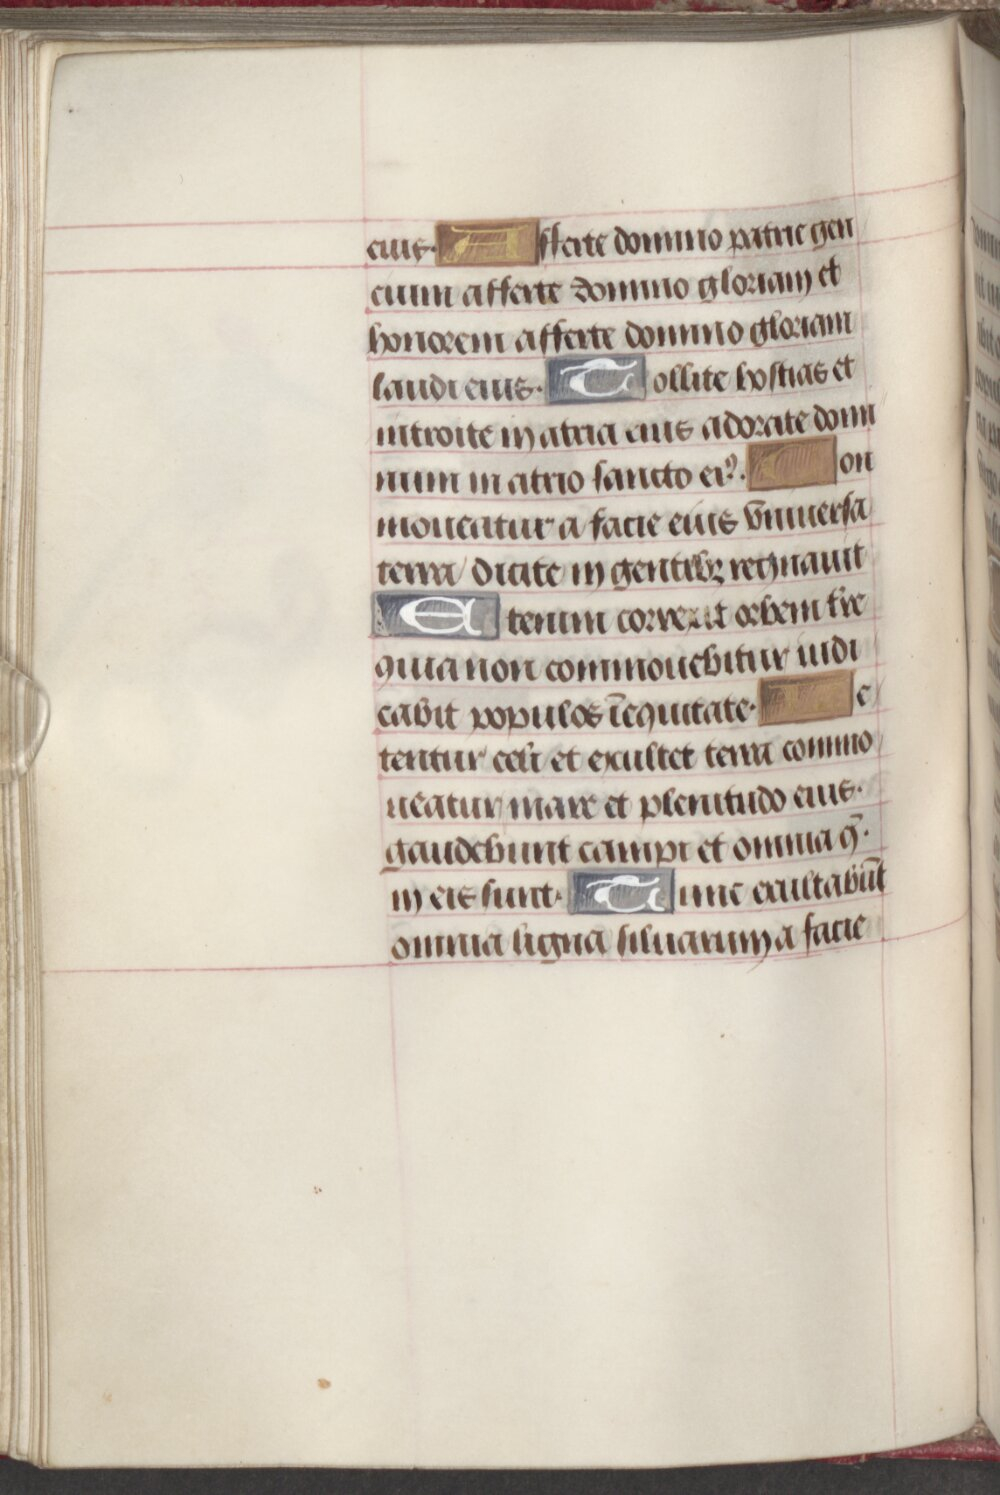 eius. Afferte domino patrie gen
cium afferte domino gloriam et
honorem afferte domino gloriam
laudi eius. Tollite hostias et
introite in atria eius adorate domi
num in atrio sancto eiꝰ. Con
moueatur a facie eius vniuersa
terra dicite in gentibꝫ regnauit
Etenim correxit orbem t̄re
quia non commouebitur iudi
cabit populos ī equitate. Le
tentur celi et exultet terra commo
ueatur mare et plenitudo eius.
gaudebunt campi et omnia q̄.
in eis sunt. Tunc exultabūt
omnia ligna siluarum a facie